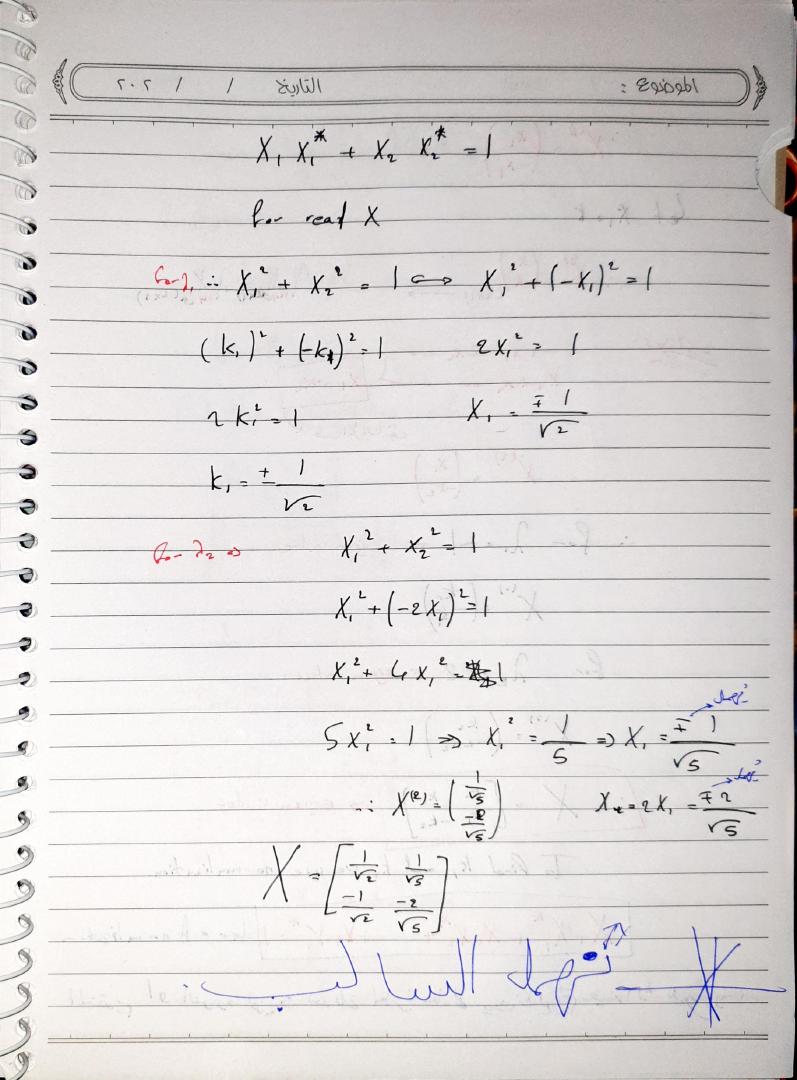 الموضوع : التاريخ / / ٢٠٢
X₁ X₁* + X₂ X₂* = 1
for real X
for λ₁ ∴ X₁² + X₂² = 1 ⟺ X₁² + (-X₁)² = 1
(k₁)² + (-k₁)² = 1 2X₁² = 1
2 k₁² = 1 X₁ = ∓1/√2
k₁ = ± 1/√2
for λ₂ ⇒ X₁² + X₂² = 1
X₁² + (-2X₁)² = 1
X₁² + 4X₁² = 1
5X₁² = 1 ⇒ X₁² = 1/5 ⇒ X₁ = ∓1/√5 → تهمل
∴ X⁽²⁾ = (1/√5 -2/√5) X₂ = 2X₁ = ∓2/√5 → تهمل
X = [1/√2 1/√5
-1/√2 -2/√5]
نهمل السالب